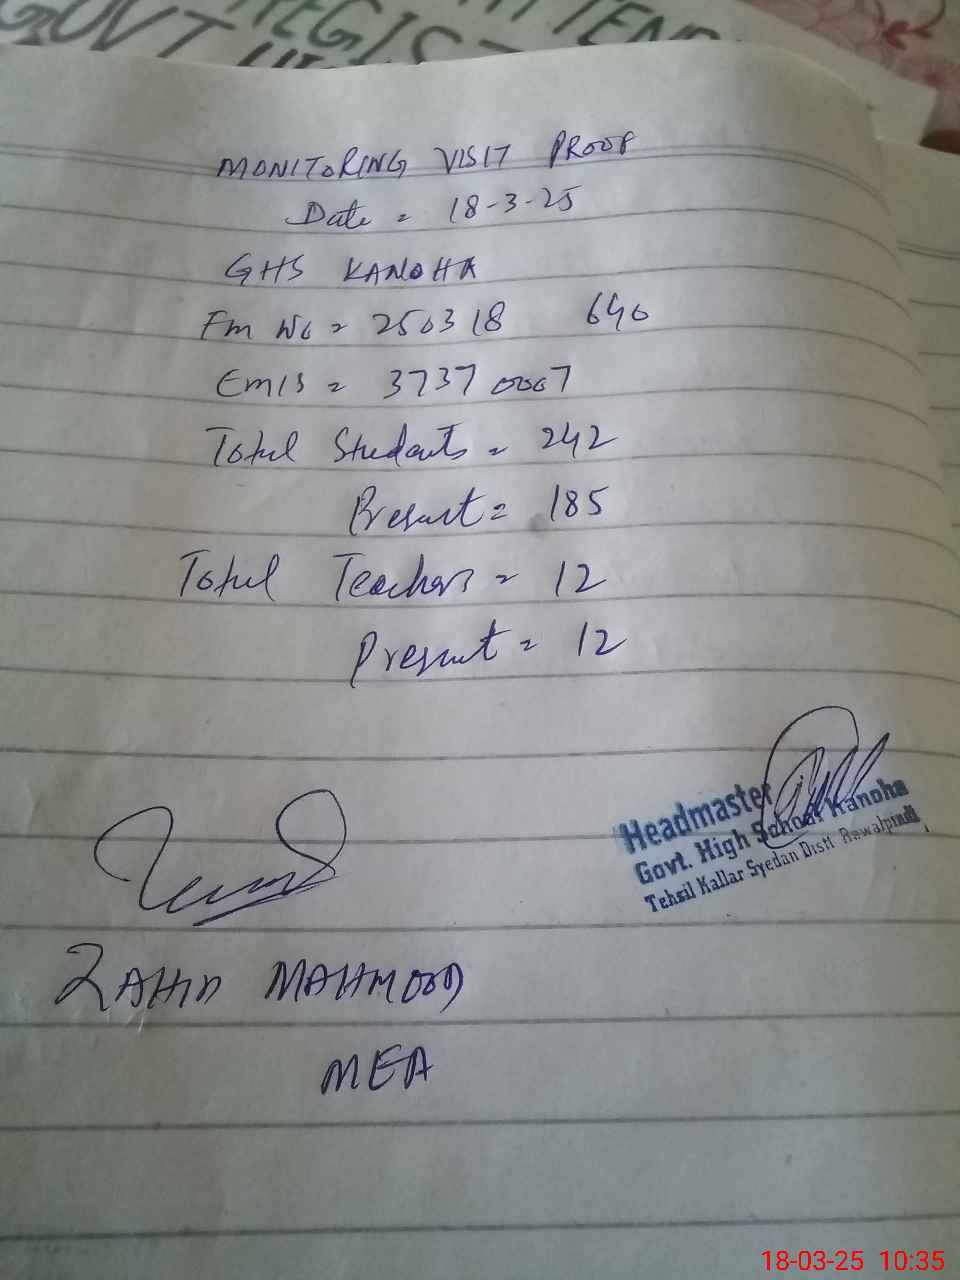 GOVT
REGIST
TTEND
MONITORING VISIT PROOF
Date = 18-3-25
GHS KANOHA
Fm No = 250318 646
Emis = 37370007
Total Students = 242
Present = 185
Total Teachers = 12
Present = 12
Headmaster
Govt. High School Kanoha
Tehsil Kallar Syedan Distt Rawalpindi
ZAHID MAHMOOD
MEA
18-03-25 10:35